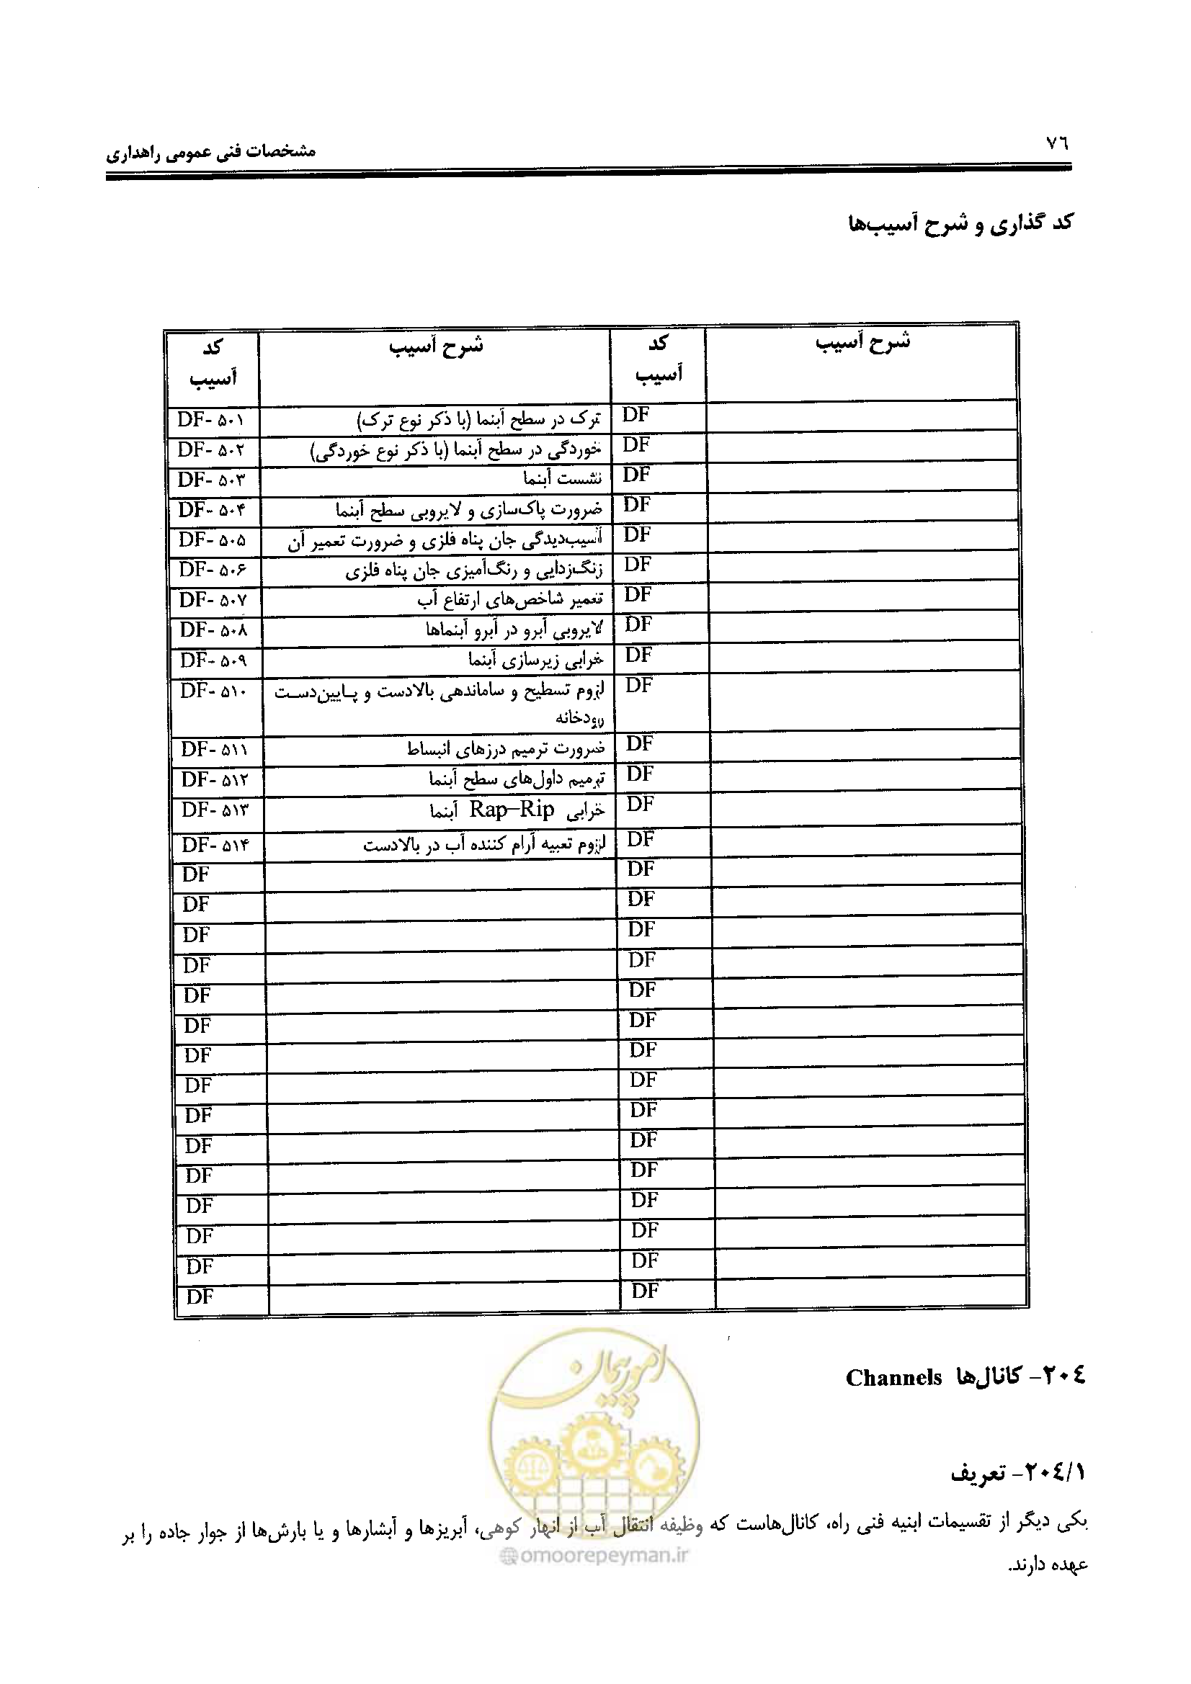 ۷٦
مشخصات فنی عمومی راهداری
کد گذاری و شرح آسیب‌ها
شرح آسیب | کد آسیب | شرح آسیب | کد آسیب
DF | ترک در سطح آبنما (با ذکر نوع ترک) | DF- ۵۰۱
DF | خوردگی در سطح آبنما (با ذکر نوع خوردگی) | DF- ۵۰۲
DF | نشست آبنما | DF- ۵۰۳
DF | ضرورت پاک‌سازی و لایروبی سطح آبنما | DF- ۵۰۴
DF | آسیب‌دیدگی جان پناه فلزی و ضرورت تعمیر آن | DF- ۵۰۵
DF | زنگ‌زدایی و رنگ‌آمیزی جان پناه فلزی | DF- ۵۰۶
DF | تعمیر شاخص‌های ارتفاع آب | DF- ۵۰۷
DF | لایروبی آبرو در آبرو آبنماها | DF- ۵۰۸
DF | خرابی زیرسازی آبنما | DF- ۵۰۹
DF | لزوم تسطیح و ساماندهی بالادست و پایین‌دست رودخانه | DF- ۵۱۰
DF | ضرورت ترمیم درزهای انبساط | DF- ۵۱۱
DF | ترمیم داول‌های سطح آبنما | DF- ۵۱۲
DF | خرابی Rap–Rip آبنما | DF- ۵۱۳
DF | لزوم تعبیه آرام کننده آب در بالادست | DF- ۵۱۴
DF | DF
DF | DF
DF | DF
DF | DF
DF | DF
DF | DF
DF | DF
DF | DF
DF | DF
DF | DF
DF | DF
DF | DF
DF | DF
DF | DF
DF | DF
۲۰٤- کانال‌ها Channels
۲۰٤/۱- تعریف
یکی دیگر از تقسیمات ابنیه فنی راه، کانال‌هاست که وظیفه انتقال آب از انهار کوهی، آبریزها و آبشارها و یا بارش‌ها از جوار جاده را بر
عهده دارند.
امور پیمان
@omoorepeyman.ir